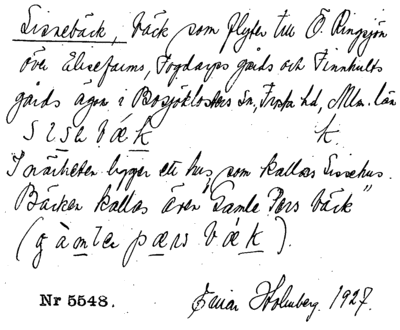 Sissebäck, bäck som flyter till Ö. Ringsjön
över Elisefarms, Fogdarps gårds och Finnhults
gårds ägor i Bosjöklosters sn, Frosta hd, Mlm. län
k.
I närheten ligger ett hus, som kallas Sissehus.
Bäcken kallas även "Gamle Pers bäck"
Nr 5548. Einar Holmberg. 1927.